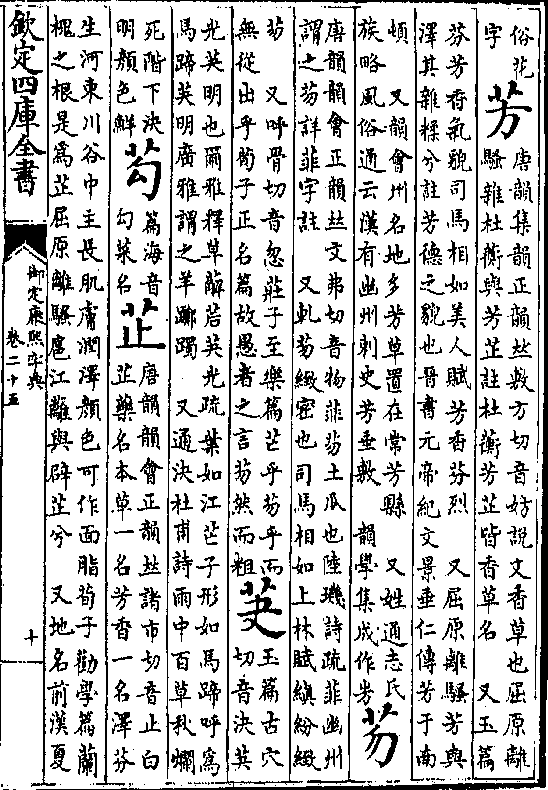 俗芲
字
芳
唐韻集韻正韻𠀤敷方切音妨說文香草也屈原離
騷雜杜蘅與芳芷註杜蘅芳芷皆香草名 又玉篇
芬芳香氣貌司馬相如美人賦芳香芬烈 又屈原離騷芳與
澤其雜糅兮註芳德之貌也晉書元帝紀文景垂仁傳芳于南
頓 又韻會州名地多芳草置在常芳縣 又姓通志氏
族略風俗通云漢有幽州刺史芳垂敷 韻學集成作竻
芴
唐韻韻會正韻𠀤文弗切音物菲芴土瓜也陸璣詩疏菲幽州
謂之芴詳菲字註 又軋芴緻密也司馬相如上林賦縝紛緻
芴 又呼骨切音忽莊子至樂篇芒乎芴乎而
無從出乎荀子正名篇故愚者之言芴然而粗
芵
玉篇古穴
切音決芵
光芵明也爾雅釋草薢茩芵光疏葉如江芒子形如馬蹄呼爲
馬蹄芵明廣雅謂之羊躑躅 又通決杜甫詩雨中百草秋爛
死階下決
明顏色鮮
芶
篇海音
勾菜名
芷
唐韻韻會正韻𠀤諸市切音止白
芷藥名本草一名芳香一名澤芬
生河東川谷中主長肌膚潤澤顏色可作面脂荀子勸學篇蘭
槐之根是爲芷屈原離騷扈江離與辟芷兮 又地名前漢夏
欽定四庫全書
御定康熙字典
卷二十五
十